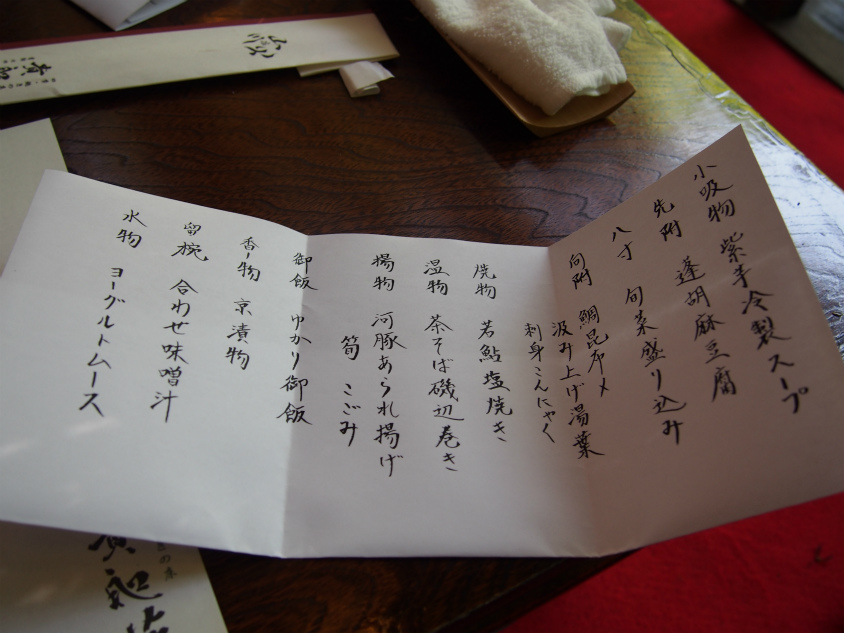 小吸物 紫芋冷製スープ
先附 蓬胡麻豆腐
八寸 旬菜盛り込み
向附 鯛昆布〆
汲み上げ湯葉
刺身こんにゃく
焼物 若鮎塩焼き
温物 茶そば磯辺巻き
揚物 河豚あられ揚げ
筍 こごみ
御飯 ゆかり御飯
香の物 京漬物
留椀 合わせ味噌汁
水物 ヨーグルトムース